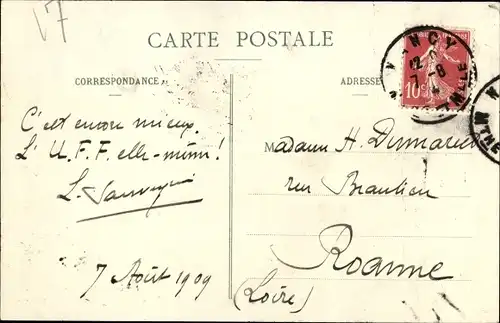 17
CARTE POSTALE
CORRESPONDANCE
ADRESSE
NANCY
7-8
10c
C'est encore mieux.
L'U.F.F. elle-même!
7 Août 1909
Madame H.
rue Beaulieu
Roanne
(Loire)